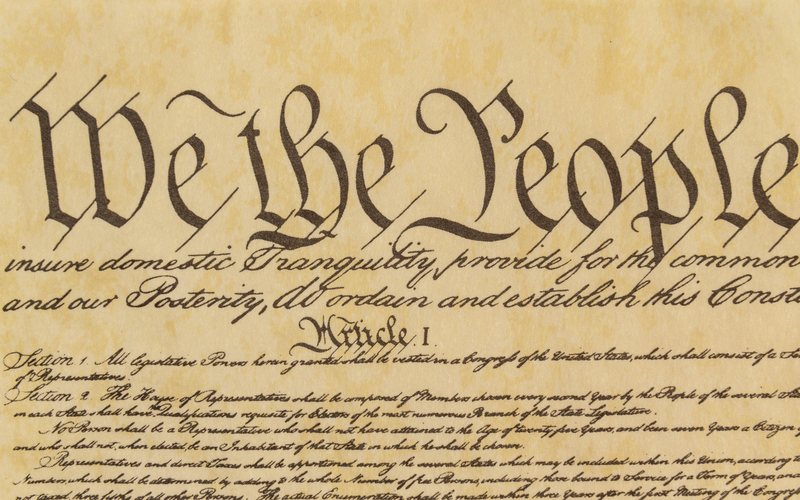 We the People
insure domestic Tranquility, provide for the common
and our Posterity, do ordain and establish this Const
Article. I.
Section 1. All legislative Powers herein granted shall be vested in a Congress of the United States, which shall consist of a Se
of Representatives.
Section 2. The House of Representatives shall be composed of Members chosen every second Year by the People of the several Sta
in each State shall have Qualifications requisite for Electors of the most numerous Branch of the State Legislature.
No Person shall be a Representative who shall not have attained to the Age of twenty five Years, and been seven Years a Citizen
and who shall not, when elected, be an Inhabitant of that State in which he shall be chosen.
Representatives and direct Taxes shall be apportioned among the several States which may be included within this Union, according to
Numbers, which shall be determined by adding to the whole Number of free Persons, including those bound to Service for a Term of Years, and
not taxed, three fifths of all other Persons. The actual Enumeration shall be made within three Years after the first Meeting of the Congre